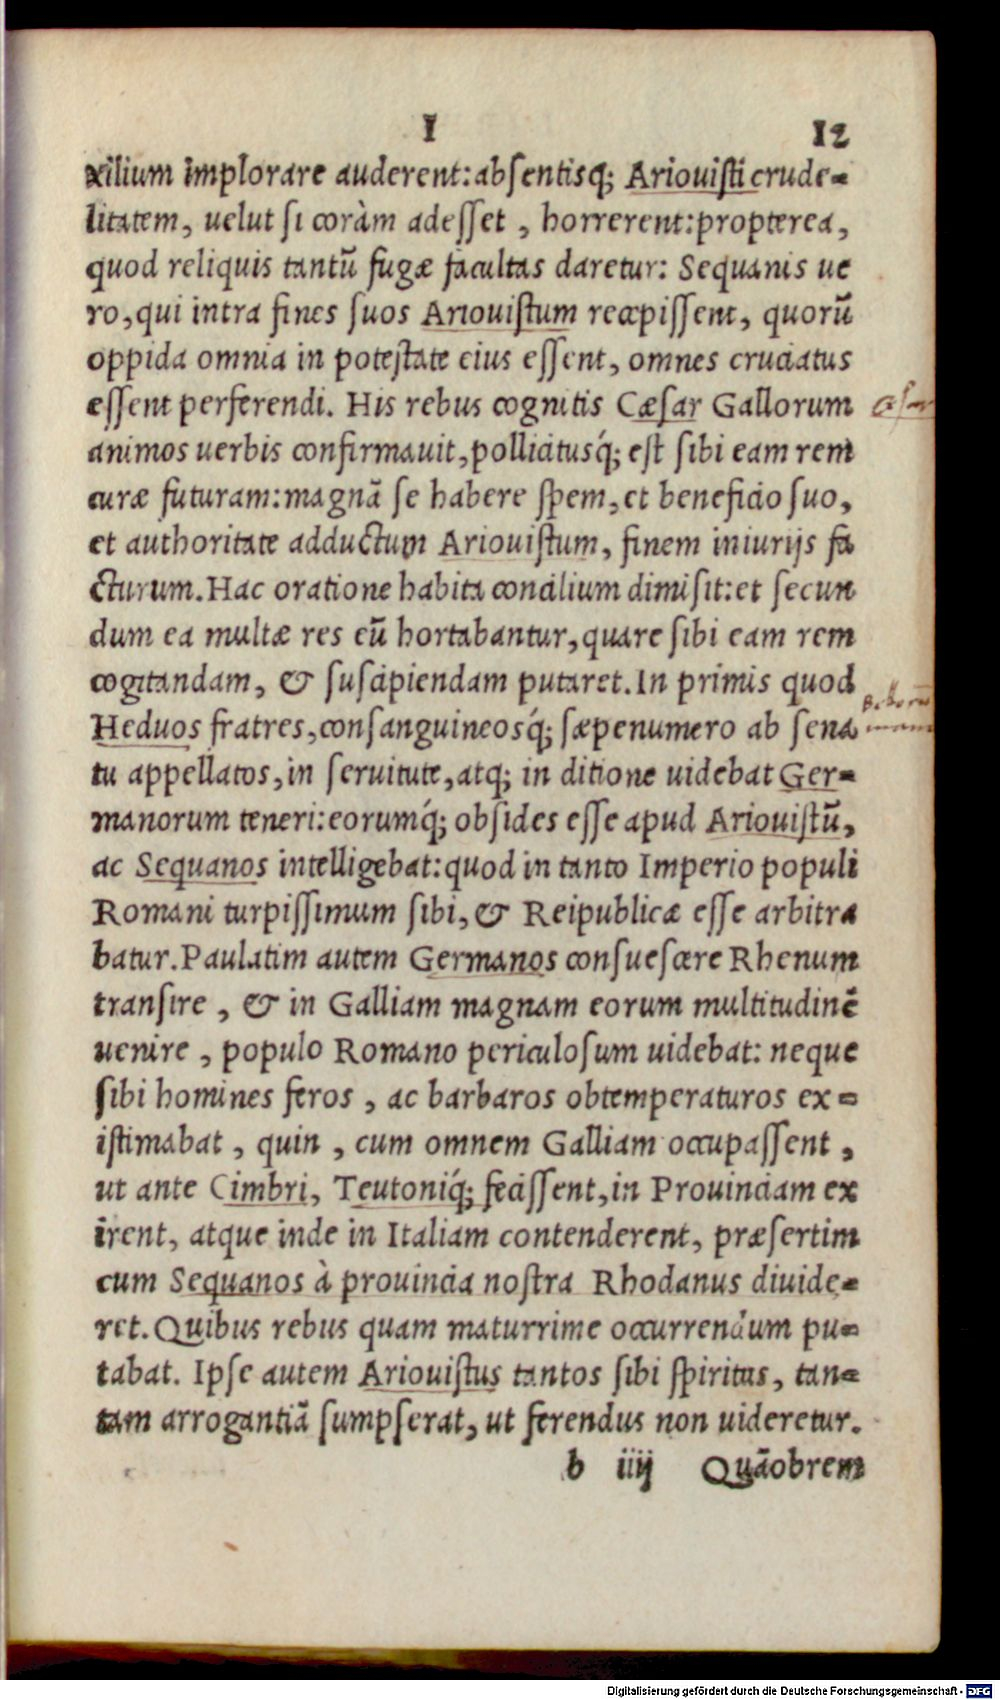 I 12
xilium implorare auderent: absentisq́; Ariouisti crude-
litatem, uelut si coràm adesset, horrerent: propterea,
quod reliquis tantũ fugæ facultas daretur: Sequanis ue
ro, qui intra fines suos Ariouistum recepissent, quorũ
oppida omnia in potestate eius essent, omnes cruciatus
essent perferendi. His rebus cognitis Cæsar Gallorum
Cæsar
animos uerbis confirmauit, pollicitusq́; est sibi eam rem
curæ futuram: magnã se habere spem, et beneficio suo,
et authoritate adductum Ariouistum, finem iniurijs fa
cturum. Hac oratione habita concilium dimisit: et secun
dum ea multæ res eũ hortabantur, quare sibi eam rem
cogitandam, & suscipiendam putaret. In primis quod
Heduos fratres, consanguineosq́; sæpenumero ab sena
tu appellatos, in seruitute, atq; in ditione uidebat Ger-
manorum teneri: eorumq́; obsides esse apud Ariouistũ,
ac Sequanos intelligebat: quod in tanto Imperio populi
Romani turpissimum sibi, & Reipublicæ esse arbitra
batur. Paulatim autem Germanos consuescere Rhenum
transire, & in Galliam magnam eorum multitudinẽ
uenire, populo Romano periculosum uidebat: neque
sibi homines feros, ac barbaros obtemperaturos ex-
istimabat, quin, cum omnem Galliam occupassent,
ut ante Cimbri, Teutoniq́; fecissent, in Prouinciam ex
irent, atque inde in Italiam contenderent, præsertim
cum Sequanos à prouincia nostra Rhodanus diuide-
ret. Quibus rebus quam maturrime occurrendum pu-
tabat. Ipse autem Ariouistus tantos sibi spiritus, tan-
tam arrogantiã sumpserat, ut ferendus non uideretur.
b iiij Quãobrem
Digitalisierung gefördert durch die Deutsche Forschungsgemeinschaft - DFG